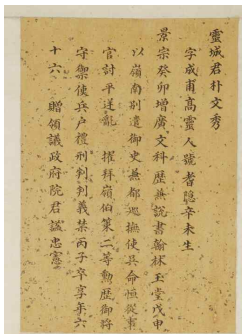 靈城君朴文秀
字成甫高靈人號耆隱辛未生
景宗癸卯增廣文科歷兼說書翰林玉堂戊申
以嶺南別遣御史兼都巡撫使具命恒從事
官討平逆亂　擢拜嶺伯策二等勳歷御將
守禦使兵戶禮刑判判義禁丙子卒享年六
十六　贈領議政府院君諡忠憲